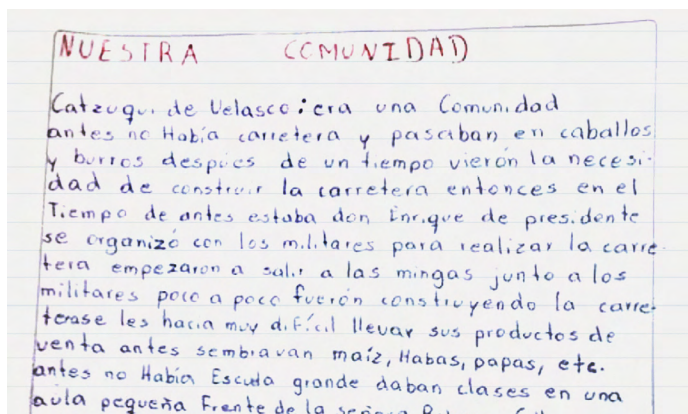 NUESTRA COMUNIDAD
Catzuqui de Velasco: era una Comunidad
antes no Había carretera y pasaban en caballos
y burros despues de un tiempo vierón la necesi-
dad de construir la carretera entonces en el
Tiempo de antes estaba don Enrique de presidente
se organizó con los militares para realizar la carre-
tera empezarón a salir a las mingas junto a los
militares poco a poco fuerón construyendo la carre-
terase les hacia muy difícil llevar sus productos de
venta antes sembravan maíz, Habas, papas, etc.
antes no Había Escuela grande daban clases en una
aula pequeña Frente de la señora